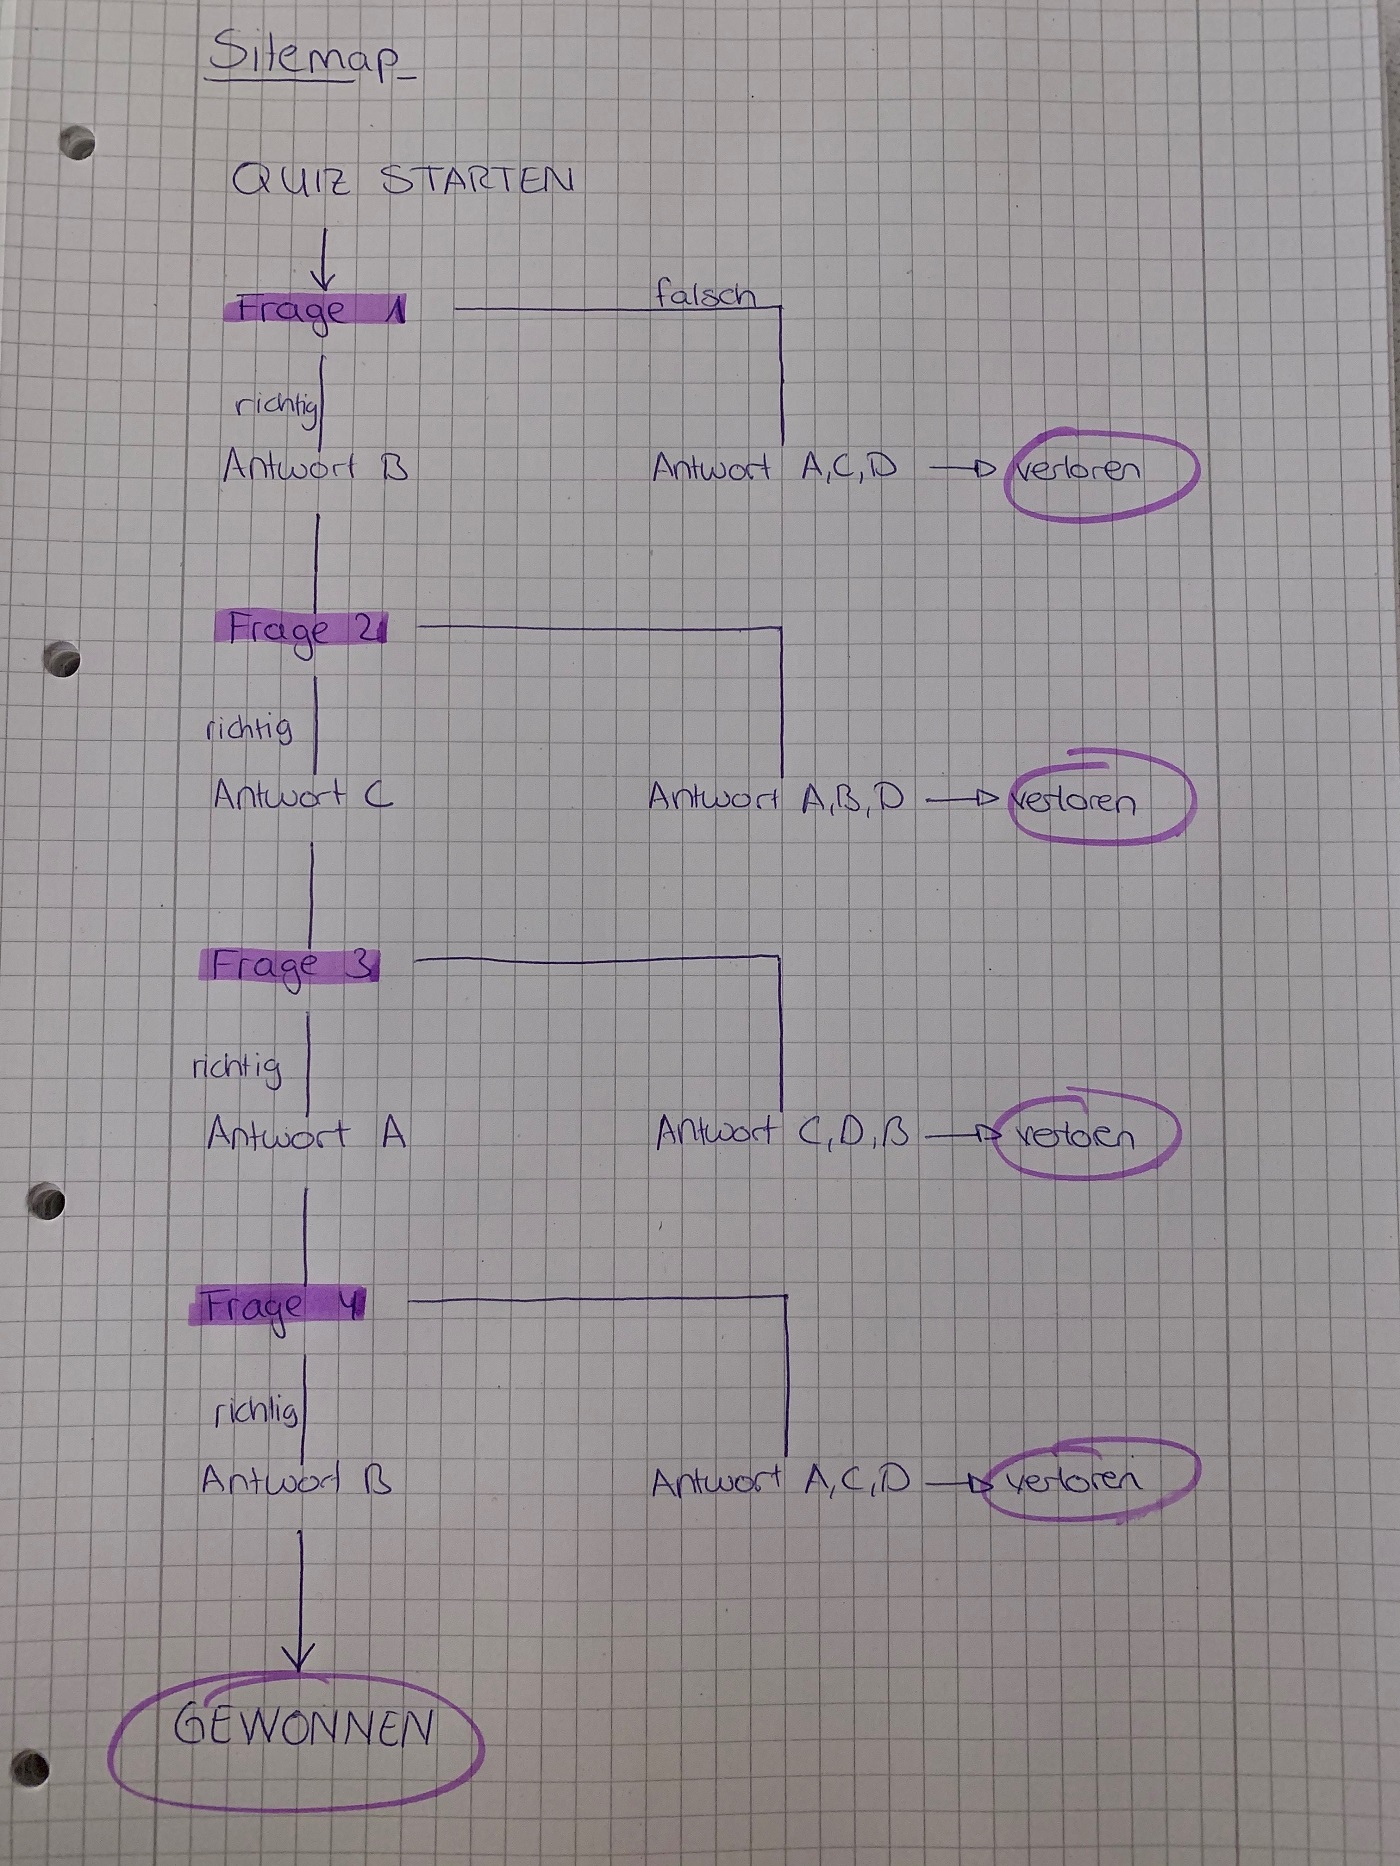 Sitemap
QUIZ STARTEN
Frage 1
falsch
richtig
Antwort B
Antwort A,C,D
verloren
Frage 2
richtig
Antwort C
Antwort A,B,D
verloren
Frage 3
richtig
Antwort A
Antwort C,D,B
verloen
Frage 4
richtig
Antwort B
Antwort A,C,D
verloren
GEWONNEN